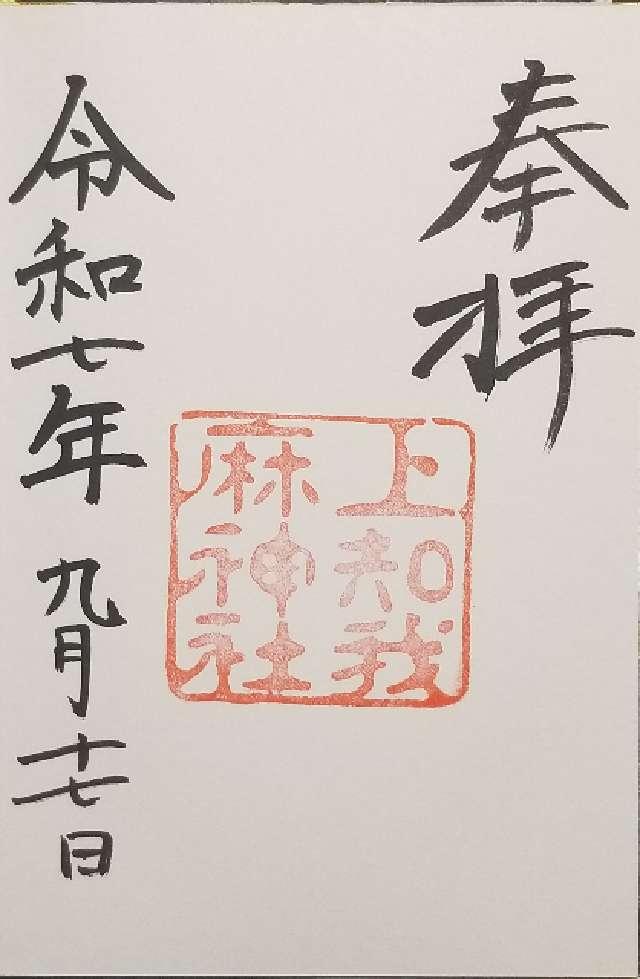 奉拝
上知我
麻神社
令和七年九月十七日